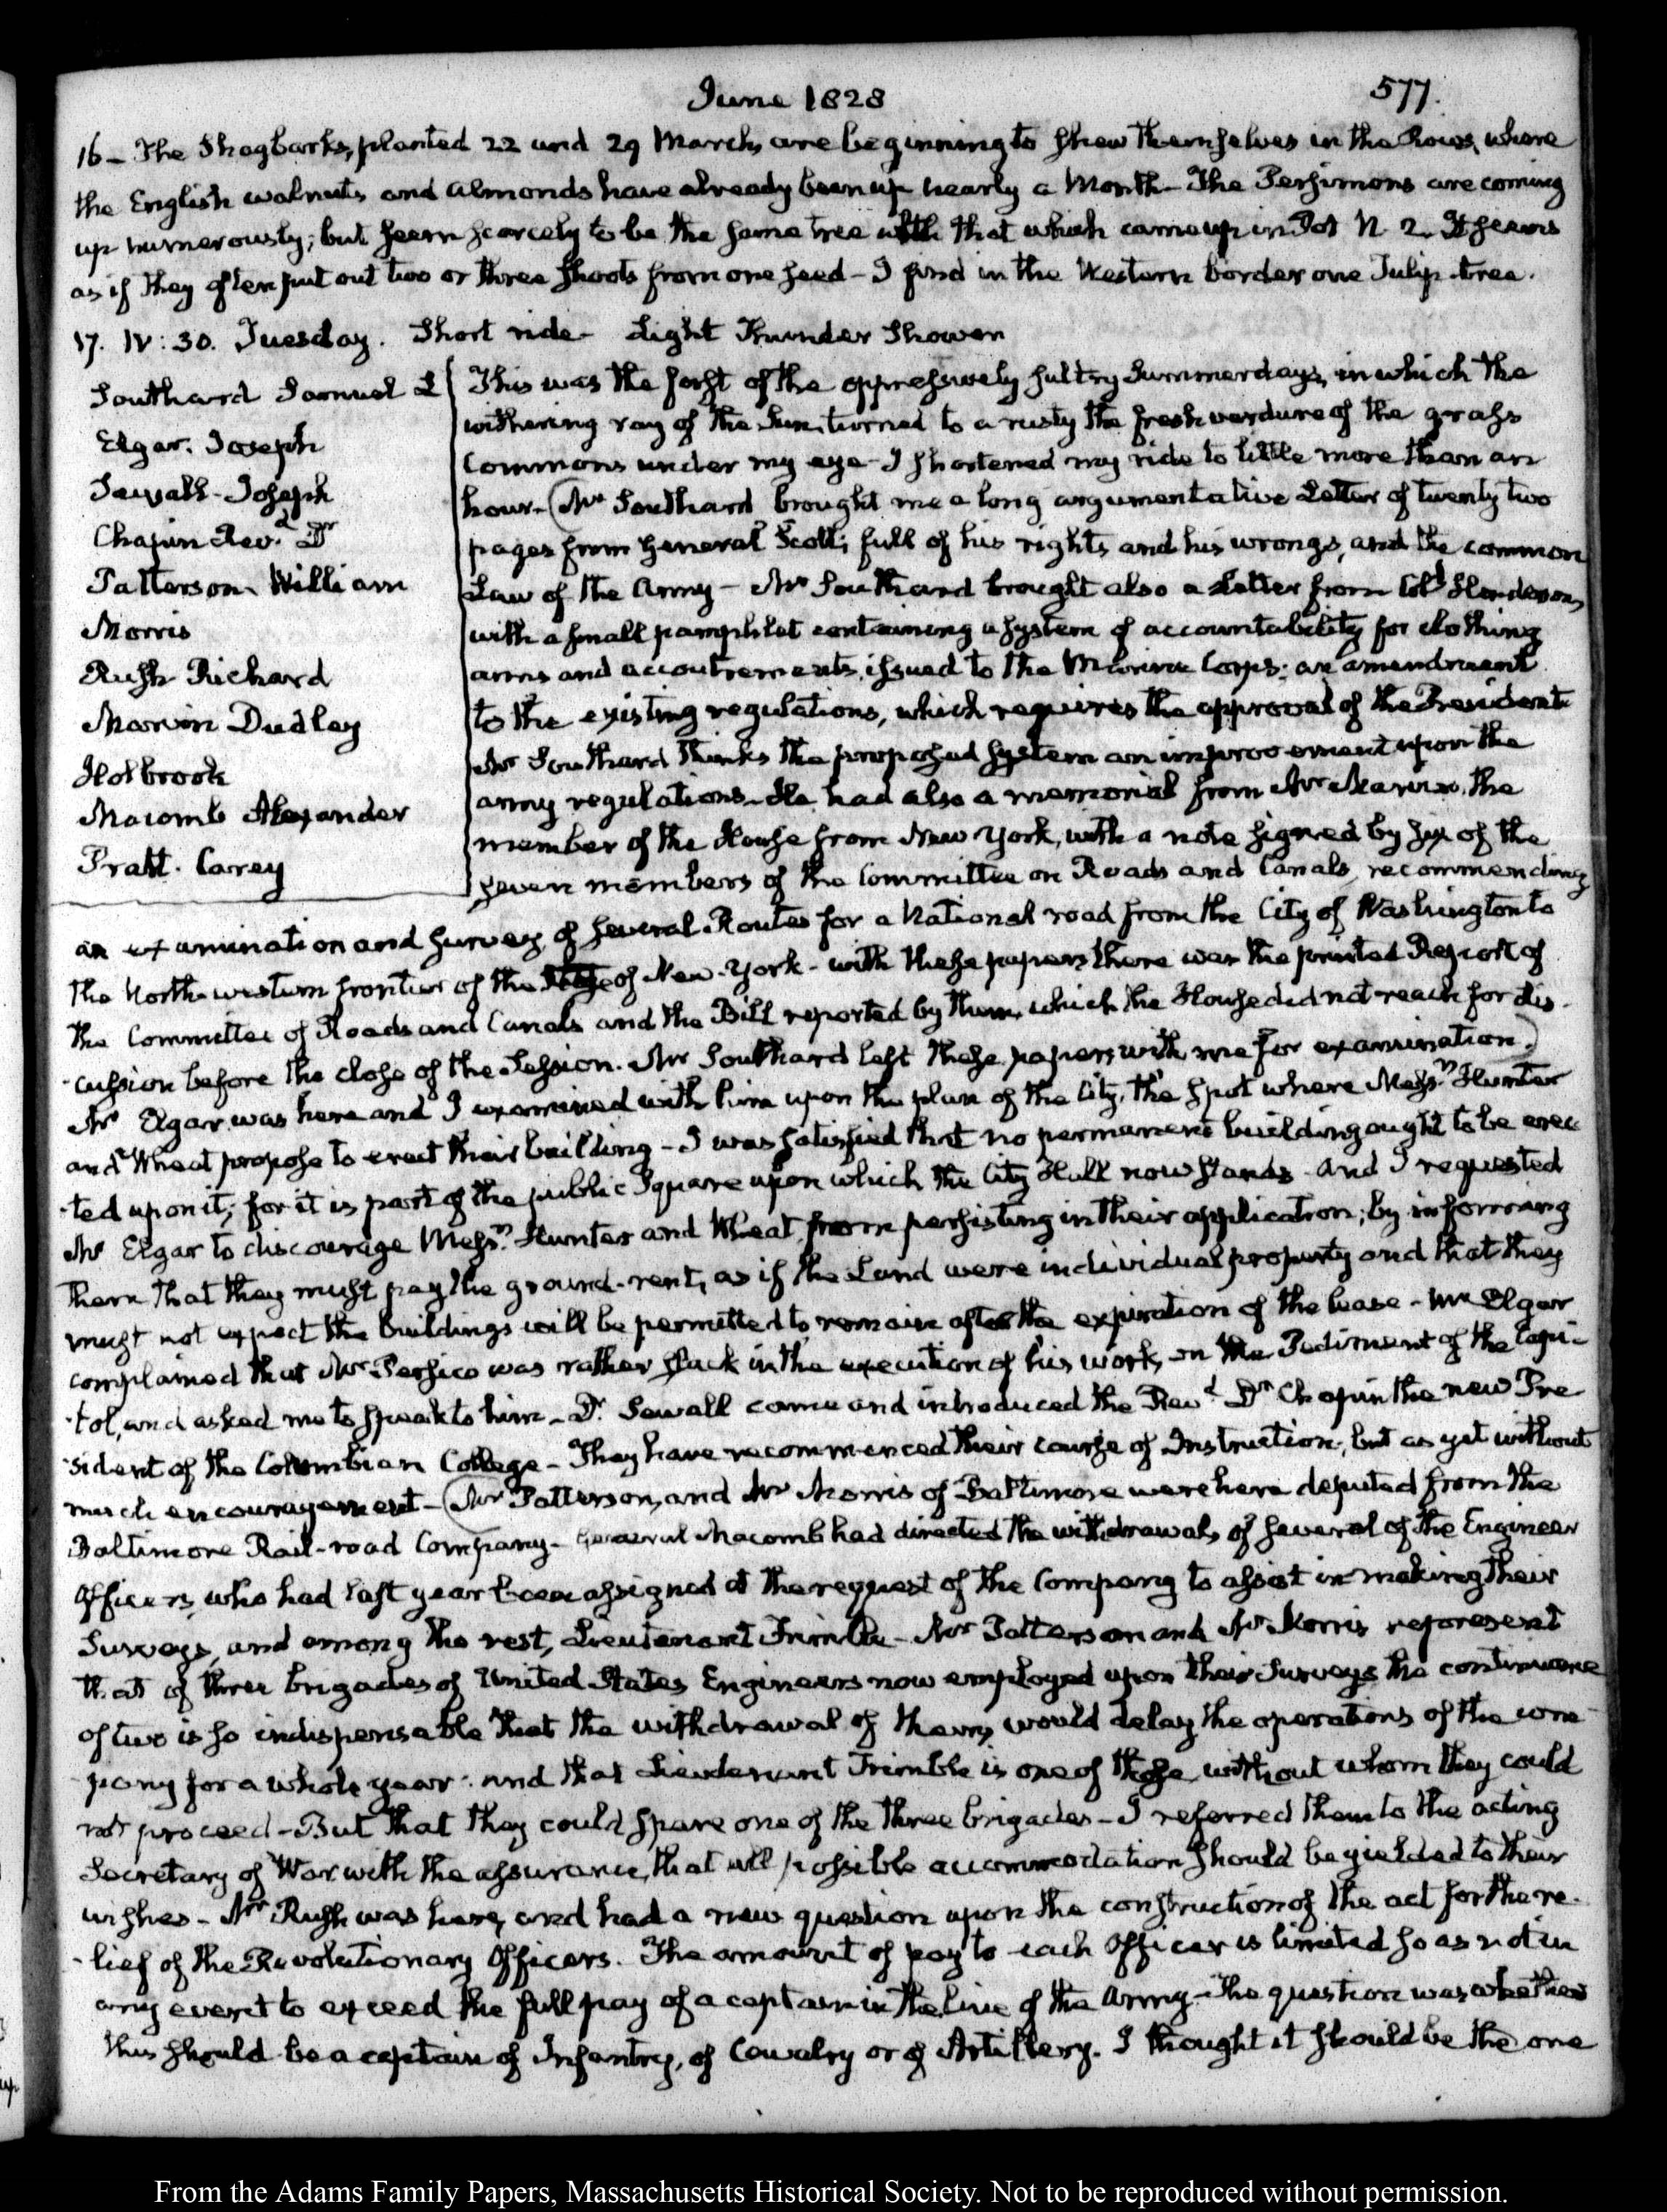 June 1828
577.
16 – The Shagbarks, planted 22 and 29 March, are beginning to shew themselves in the Rows, where
the English walnuts and almonds have already been up nearly a Month – The Persimons are coming
up numerously; but seem scarcely to be the same tree with that which came up in Pot N. 2. It seems
as if they often put out two or three shoots from one seed – I find in the Western border one Tulip-tree.
17. IV: 30. Tuesday. Short ride – Light Thunder Shower
Southard Samuel L
Elgar. Joseph
Sewall – Joseph
Chapin Revd. Dr
Patterson William
Morris
Rush Richard
Marvin Dudley
Holbrook
Macomb Alexander
Pratt. Carey
This was the first of the oppressively sultry Summer days, in which the
withering ray of the Sun, turned to a rusty the fresh verdure of the grass
Commons under my eye – I shortened my ride to little more than an
hour – (Mr Southard brought me a long argumentative Letter of twenty two
pages from General Scott; full of his rights and his wrongs, and the common
Law of the Army – Mr Southard brought also a Letter from Coll Henderson,
with a small pamphlet containing a system of accountability for clothing
arms and accoutrements, issued to the Marine Corps; an amendment
to the existing regulations, which requires the approval of the President
Mr Southard thinks the proposed System an improvement upon the
army regulations – He had also a memorial from Mr Marvin, the
member of the House from New York, with a note signed by six of the
seven members of the Committee on Roads and Canals, recommending
an examination and survey of several Routes for a National road from the City of Washington to
the North-western frontier of the State of New-York – with these papers there was the printed Report of
the Committee of Roads and Canals and the Bill reported by them, which the House did not reach for dis-
-cussion before the close of the Session. Mr Southard left these papers with me for examination.)
Mr Elgar was here and I examined with him upon the plan of the City, the spot where Messrs. Hunter
and Wheat propose to erect their building – I was satisfied that no permanent building ought to be erec
-ted upon it; for it is part of the public Square upon which the City Hall now stands – and I requested
Mr Elgar to discourage Messrs. Hunter and Wheat from persisting in their application; by informing
them that they must pay the ground-rent, as if the Land were individual property and that they
must not expect the buildings will be permitted to remain after the expiration of the lease – Mr Elgar
complained that Mr Persico was rather slack in the execution of his work, on the Pediment of the Capi-
-tol, and asked me to speak to him – Dr. Sewall came and introduced the Revd Dr Chapin the new Pre
-sident of the Columbian College – They have recommenced their course of Instruction; but as yet without
much encouragement – (Mr Patterson, and Mr Morris of Baltimore were here deputed from the
Baltimore Rail-road Company – General Macomb had directed the withdrawal, of several of the Engineer
Officers, who had last year been assigned at the request of the Company to assist in making their
Surveys, and among the rest, Lieutenant Trimble – Mr Patterson and Mr Morris represent
that of three brigades of United States Engineers now employed upon their Surveys the continuance
of two is so indispensable that the withdrawal of them, would delay the operations of the com
-pany for a whole year: and that Lieutenant Trimble is one of those without whom they could
not proceed – But that they could spare one of the three brigades – I referred them to the acting
Secretary of War with the assurance, that all possible accommodation should be yielded to their
wishes – Mr Rush was here, and had a new question upon the construction of the act for the re-
-lief of the Revolutionary Officers. The amount of pay to each Officer is limited so as not in
any event to exceed the full pay of a captain in the line of the Army – The question was whether
this should be a captain of Infantry, of Cavalry or of Artillery. I thought it should be the one
From the Adams Family Papers, Massachusetts Historical Society. Not to be reproduced without permission.